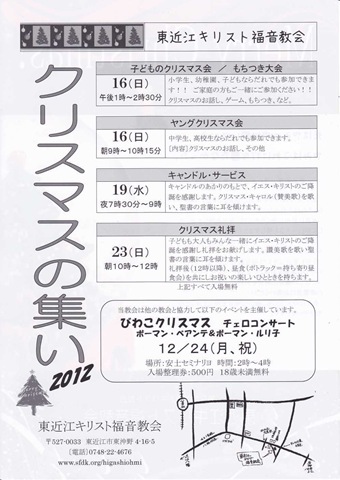 東近江キリスト福音教会
クリスマスの集い
2012
子どものクリスマス会 / もちつき大会
16(日)
午後1時~2時30分
小学生、幼稚園、子どもならだれでも参加できま
す!! ご家庭の方もご一緒にご参加ください!!
クリスマスのお話し、ゲーム、もちつき、など。
ヤングクリスマス会
16(日)
朝9時~10時15分
中学生、高校生ならだれでも参加できます。
[内容]クリスマスのお話し、その他
キャンドル・サービス
19(水)
夜7時30分~9時
キャンドルのあかりのもとで、イエス・キリストのご降
誕を感謝します。クリスマス・キャロル(賛美歌)を歌
い、聖書の言葉に耳を傾けます。
クリスマス礼拝
23(日)
朝10時~12時
子どもも大人もみんな一緒にイエス・キリストのご降
誕を感謝し礼拝をお献げします。讃美歌を歌い聖
書の言葉に耳を傾けます。
礼拝後(12時以降)、昼食(ポトラック=持ち寄り昼
食会)を共にしお祝いの楽しいひとときを持ちます。
上記すべて入場無料
当教会は他の教会と協力して以下のイベントを主催しています。
びわこクリスマス チェロコンサート
ボーマン・ベアンテ&ボーマン・ルリ子
12/24(月、祝)
場所:安土セミナリヨ 時間:2時~4時
入場整理券:500円 18歳未満無料
東近江キリスト福音教会
〒527-0033 東近江市東沖野 4-16-5
〔電話〕0748-22-4676
www.sfdk.org/higashiohmi